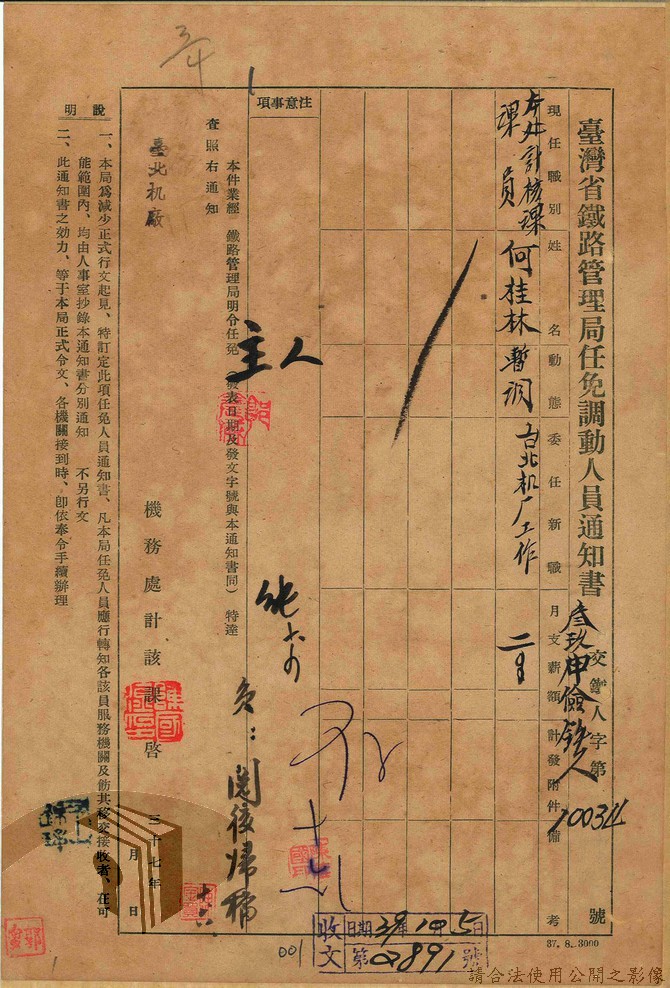 臺灣省鐵路管理局任免調動人員通知書
叁玖申儉鐵人
交鐵人字第
10034
號
現任職別
姓名
動態
委任新職
月支薪額
計發附件
備考
本处計核課
課員
何桂林
暫調
台北机厂工作
37. 8. 3000
注意事項
本件業經 鐵路管理局明令任免
發表日期及發文字號與本通知書同) 特達
查照右通知
臺北机廠
主人
閱後歸檔
機務處計該課 啓
三十七年 月 日
說明
一、本局為減少正式行文起見、特訂定此項任免人員通知書、凡本局任免人員應行轉知各該員服務機關及飭其移交接收者、在可
能範圍內、均由人事室抄錄本通知書分別通知 不另行文
二、此通知書之効力、等于本局正式令文、各機關接到時、卽依奉令手續辦理
收文
日期 39年10月5日
第 0891 號
001
請合法使用公開之影像